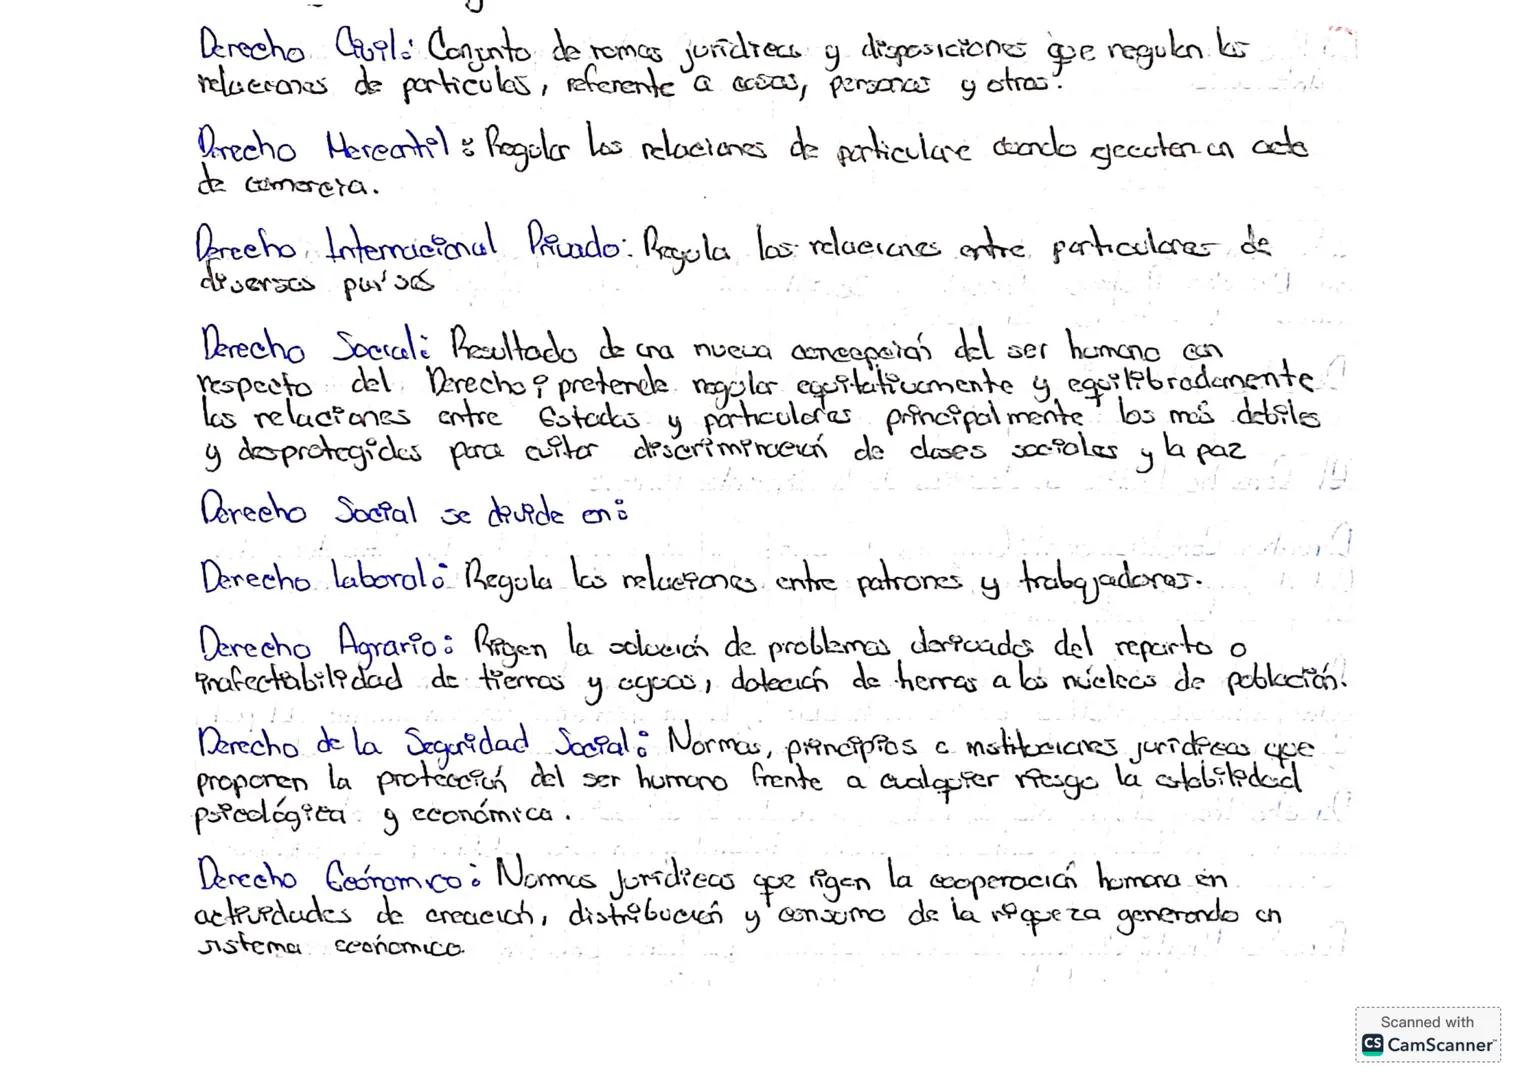 Derecho Civil: Conjunto de romas jurídicas y disposiciones que regulan las
relaciones de particulas, referente a cosas, personas y otros.
Derecho Mercantil: Regular las relaciones de particulare cuando gecuten un acto
de comercia.
Derecho Internacional Privado: Regula las relaciones entre particulares de
diversos países
Derecho Social: Resultado de una nueva concepción del ser humano con
respecto del Derecho; pretende regular equitativamente y equilibradamente
las relaciones entre Estados y particulares principalmente los más debiles
y desprotegidos para evitar discriminación de clases sociales y la paz
Derecho Social se divide en:
Derecho laboral: Regula las relaciones entre patrones y trabajadores.
Derecho Agrario: Rigen la solución de problemas derivados del reparto o
inafectabilidad de tierras y aguas, dotación de tierras a los núcleos de población.
Derecho de la Seguridad Social: Normas, principios e instituciones jurídicas que
proponen la protección del ser humano frente a cualquier riesgo la estabilidad
psicológica y económica.
Derecho Económico: Normas jurídicas que rigen la cooperación humana en
actividades de creación, distribución y consumo de la riqueza generando un
sistema económico.
Scanned with
CS CamScanner